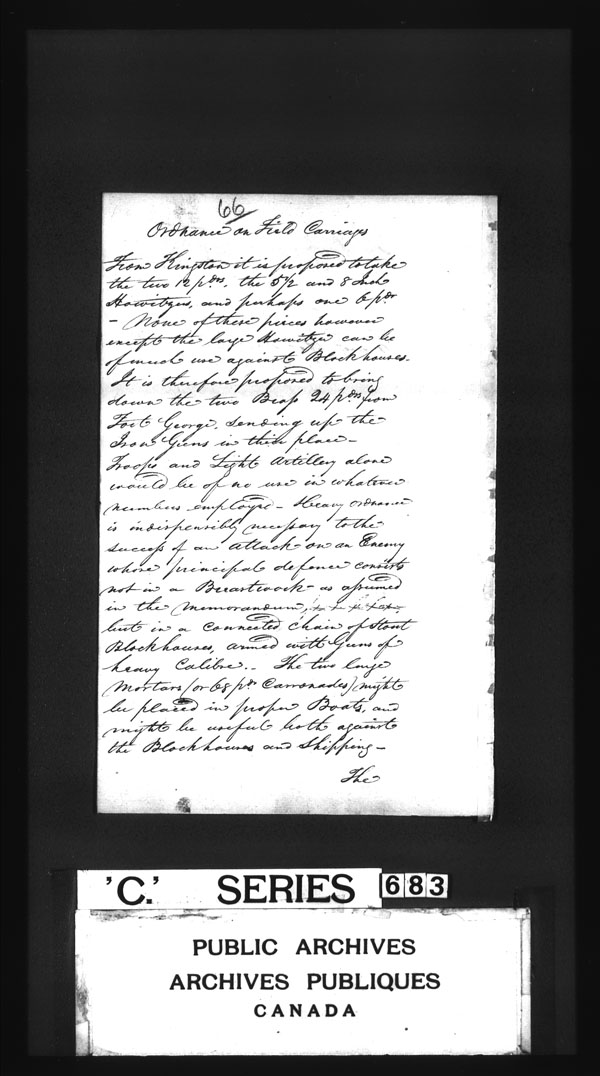 66
Ordnance on Field Carriages
From Kingston it is proposed to take
the two 12 pdrs, the 5½ and 8 Inch
Howitzers, and perhaps one 6 pdr
- None of these pieces however
except the large Howitzer can be
of much use against Blockhouses.
It is therefore proposed to bring
down the two Brass 24 pdrs from
Fort George, sending up the
Iron Guns in their place -
Troops and Light Artillery alone
would be of no use in whatever
numbers employed - Heavy ordnance
is indispensibly necessary to the
success of an attack on an Enemy
whose principal defence consists
not in a Breastwork - as assumed
in the memorandum,
but in a connected chain of stout
Blockhouses, armed with Guns of
heavy Calibre. - The two large
Mortars (or 68 pr Carronades) might
be placed in proper Boats, and
might be useful both against
the Blockhouses and Shipping -
The
'C.' SERIES 683
PUBLIC ARCHIVES
ARCHIVES PUBLIQUES
CANADA